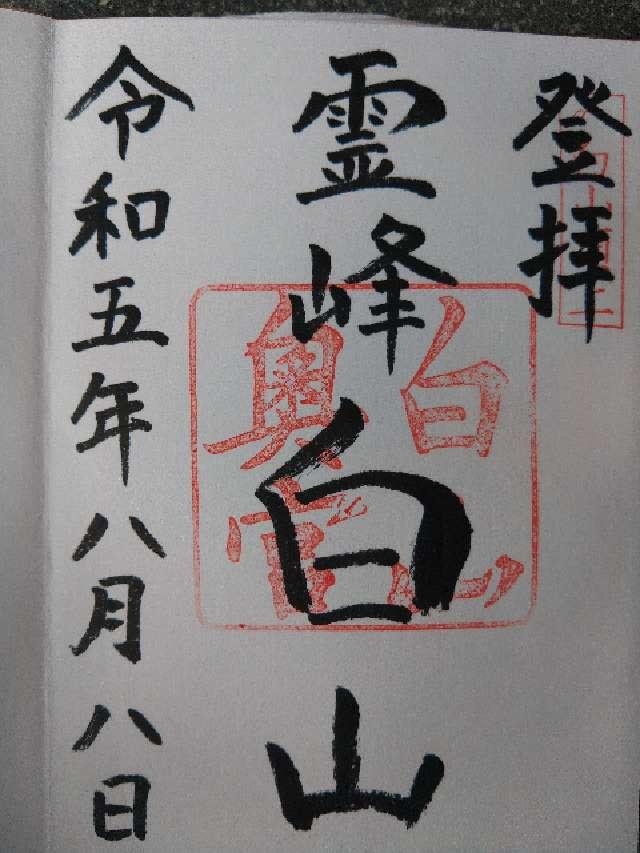 登拝
霊峰
白山
白山
奥宮
令和五年八月八日